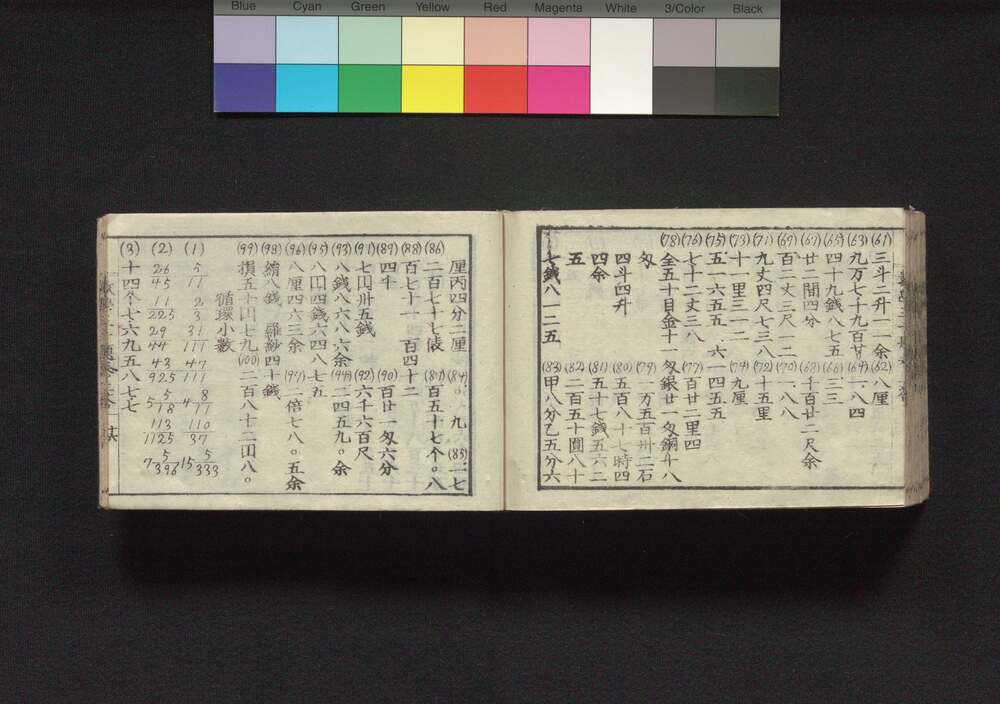 Blue Cyan Green Yellow Red Magenta White 3/Color Black
(61) 三斗二升一一余 (62) 八厘
(63) 九万七千九百廿 (64) 一八四
(65) 四十九銭八七五 (66) 三三
(67) 廿二間四分 (68) 千百廿二尺余
(69) 百二丈三尺一二 (70) 一八八
(71) 九丈四尺七三八 (72) 十五里
(73) 十一里三一二 (74) 九厘
(75) 五一六五五六一四五五
(76) 七十二丈三八 (77) 百廿二里四
(78) 金五十目金十一匁銀廿一匁銅斗八
匁 (79) 一万五百卅二石
四斗四升 (80) 五百八十七時四
四余 (81) 五十七銭五六二
五 (82) 二百五十圓八十
七銭八一二五 (83) 甲八分乙五分六
厘丙四分二厘 (84) 〇九 (85) 一七
(86) 二百七十七俵 (87) 百五十七个〇八
(88) 百七十一百四十二
(89) 四千 (90) 百廿一匁六分
(91) 七円卅五銭 (92) 六千六百尺
(93) 八銭八六八六余 (94) 二四五九〇余
(95) 八円四銭六四八七五
(96) 八厘四六三余 (97) 一倍七八〇五余
(98) 絹八銭 羅紗四十銭
(99) 損五十円七九 (100) 二百八十二円八〇
循環小数
(1) 5/11 2/3 31/111 47/111 4 8/11 110/37 15 5/333
(2) 26/45 11/225 29/44 43/925 5 5/18 113/1125 7 5/396
(3) 十四个七六九五八七七